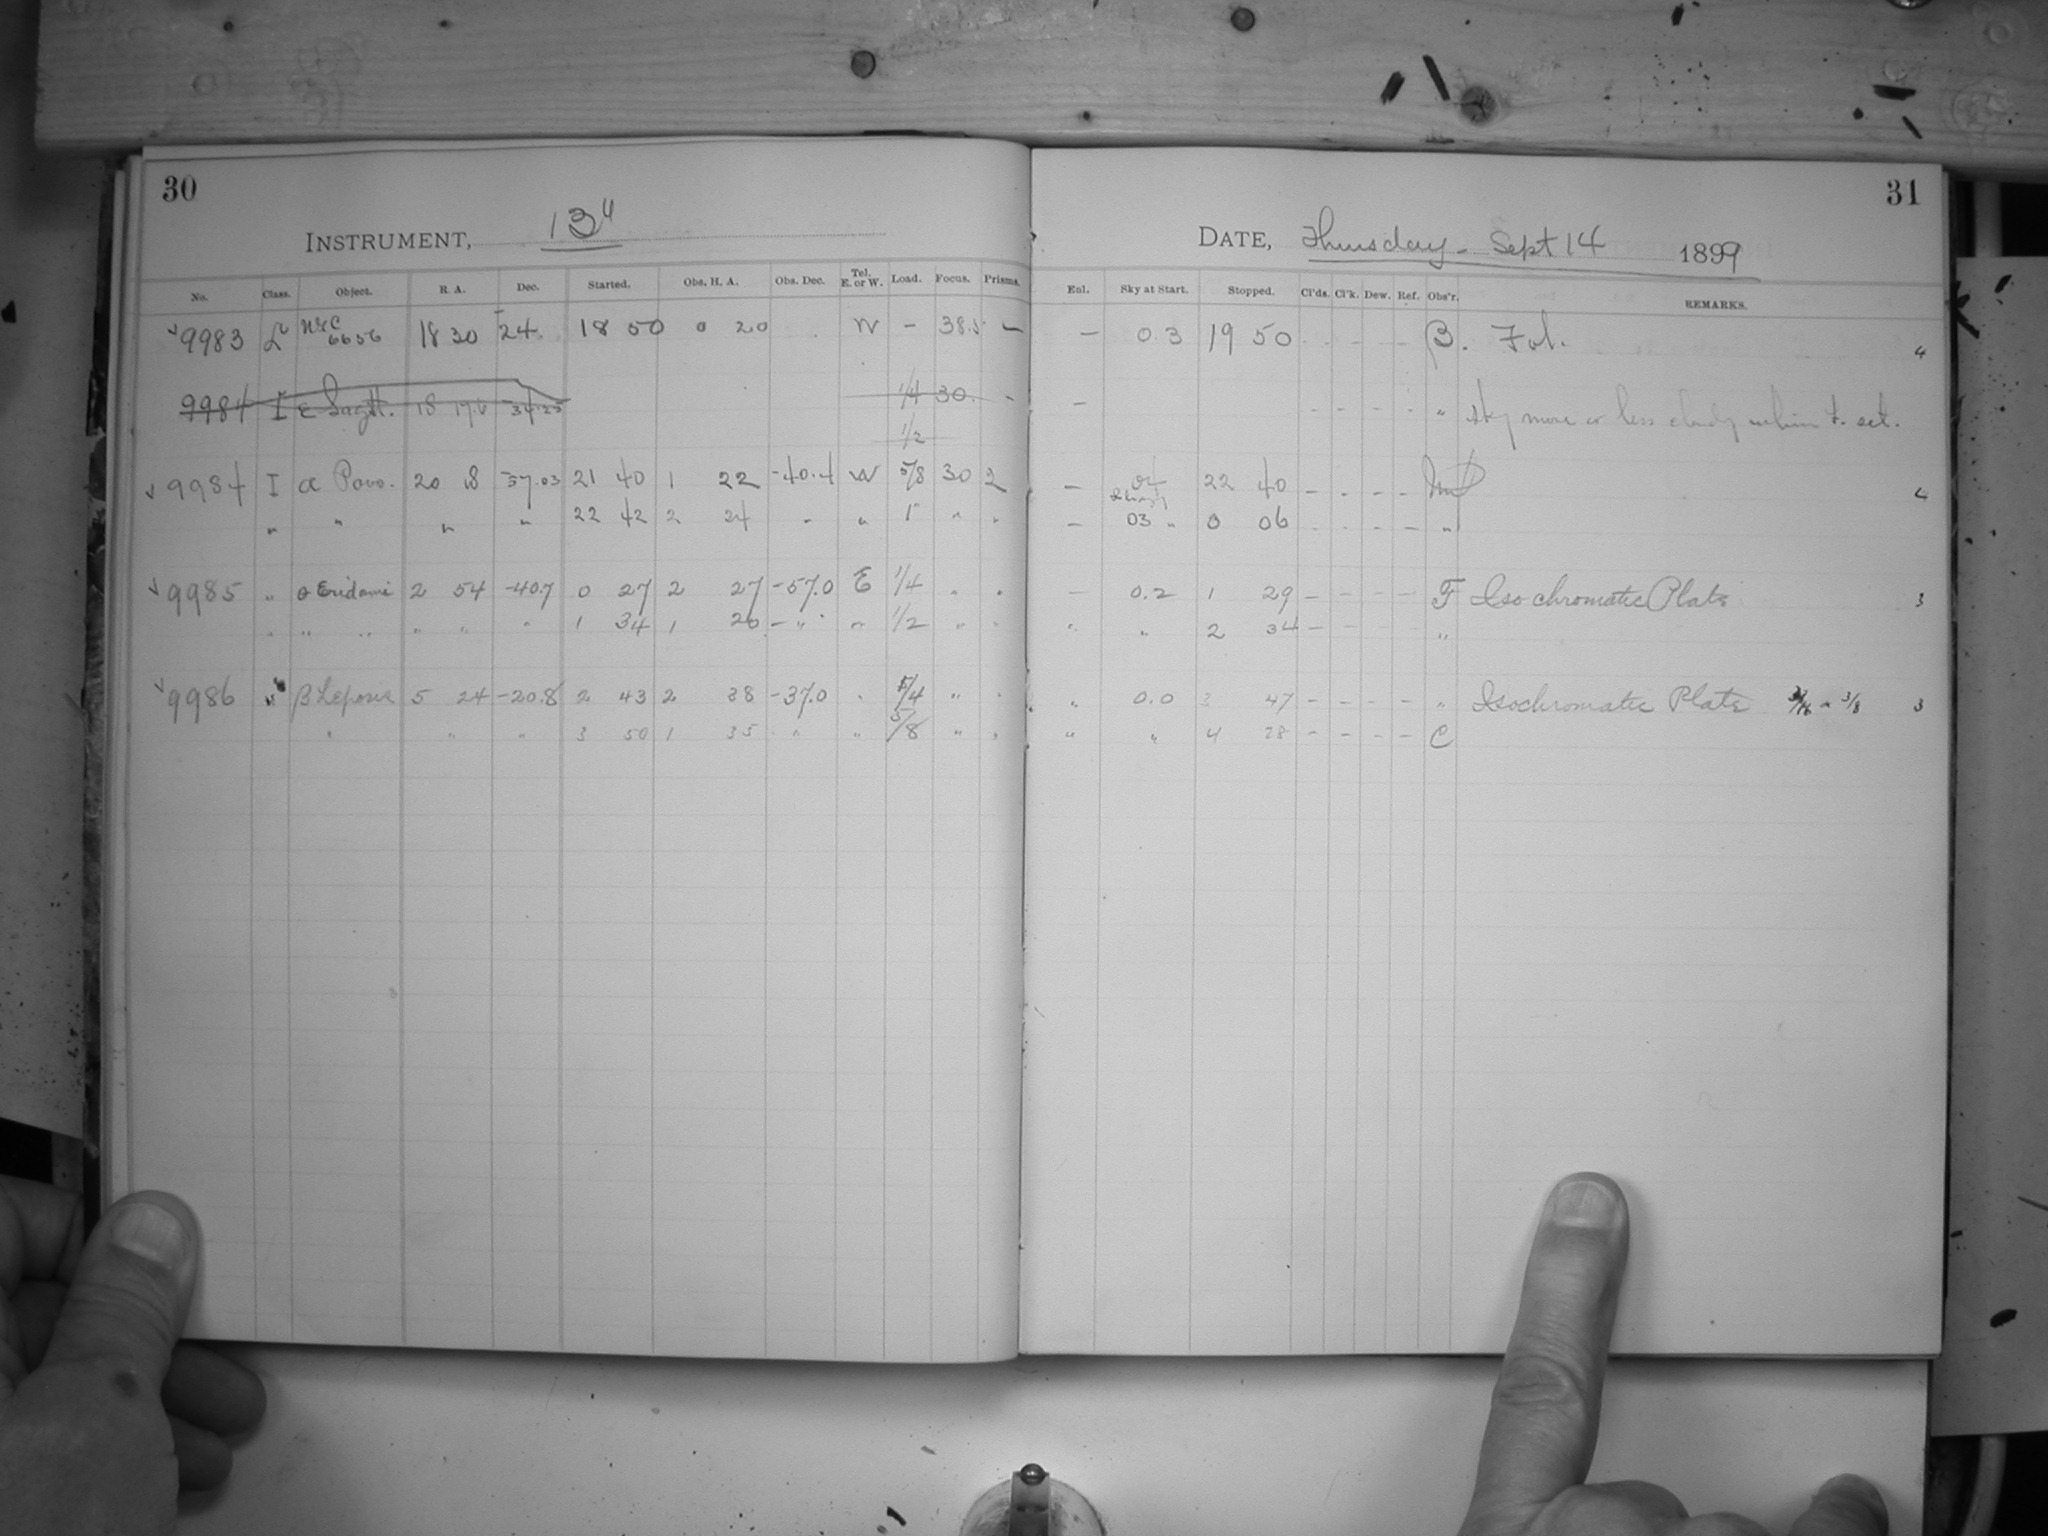 30
31
INSTRUMENT, 13"
DATE, Thursday - Sept 14 1899
No. Class. Object. R. A. Dec. Started. Obs. H. A. Obs. Dec. Tel. E. or W. Load. Focus. Prisms. Enl. Sky at Start. Stopped. Cl'ds. Cl'k. Dew. Ref. Obs'r. REMARKS.
9983 L NGC 6656 18 30 -24 18 50 0 20 W - 38.5 - - 0.3 19 50 - - - - B. 4
9984 I ε Sagitt. 18 17.6 -34.25 1/4 30. - - - - - - " Sky more or less cloudy when set.
1/2
9984 I α Pavo. 20 18 -57.03 21 40 1 22 -40.4 W 5/8 30 2 - 22 40 - - - - 4
" " " " 22 42 2 24 " " 1 " " - 03 " 0 06 - - - - "
9985 " θ Eridani 2 54 -40.7 0 27 2 27 -57.0 E 1/4 " " - 0.2 1 29 - - - - F Isochromatic Plate 3
" " " " " " 1 34 1 20 - " " 1/2 " " " " 2 34 - - - - "
9986 " β Leporis 5 24 -20.8 2 43 2 38 -37.0 " 5/4 " " " 0.0 3 47 - - - - " Isochromatic Plate 3/16 - 3/8 3
" " " 3 50 1 35 " " 5/8 " " " " 4 28 - - - - C